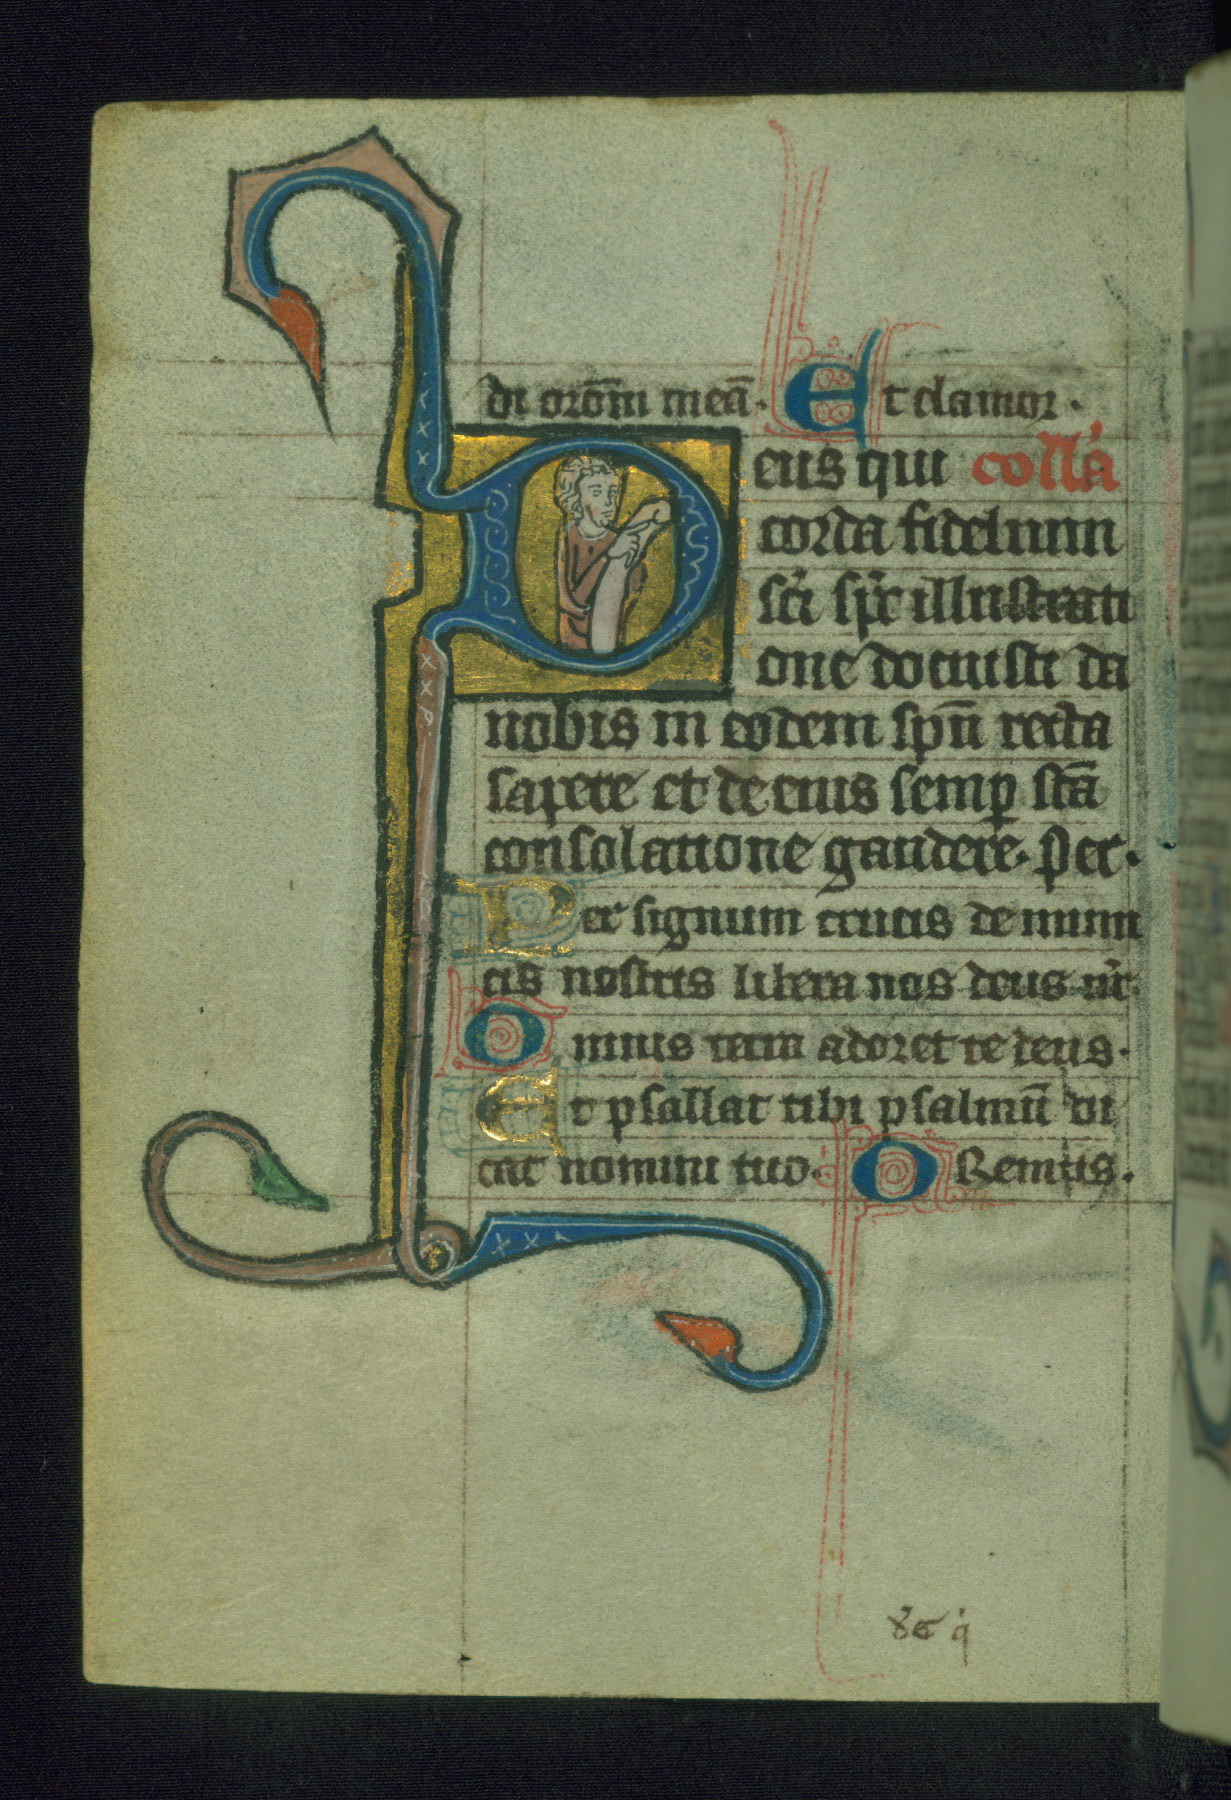 di orōm meā. Et clamor.
Deus qui coll'a
corda fidelium
sc̄i sp̄c illustrati
one docuisti da
nobis in eodem spū recta
sapere et de eius semp scā
consolatione gaudere. Per.
Per signum crucis de inimi
cis nostris libera nos deus nr̄.
Omnis terra adoret te deus.
Et psallat tibi psalmū di
cat nomini tuo. Oremus.